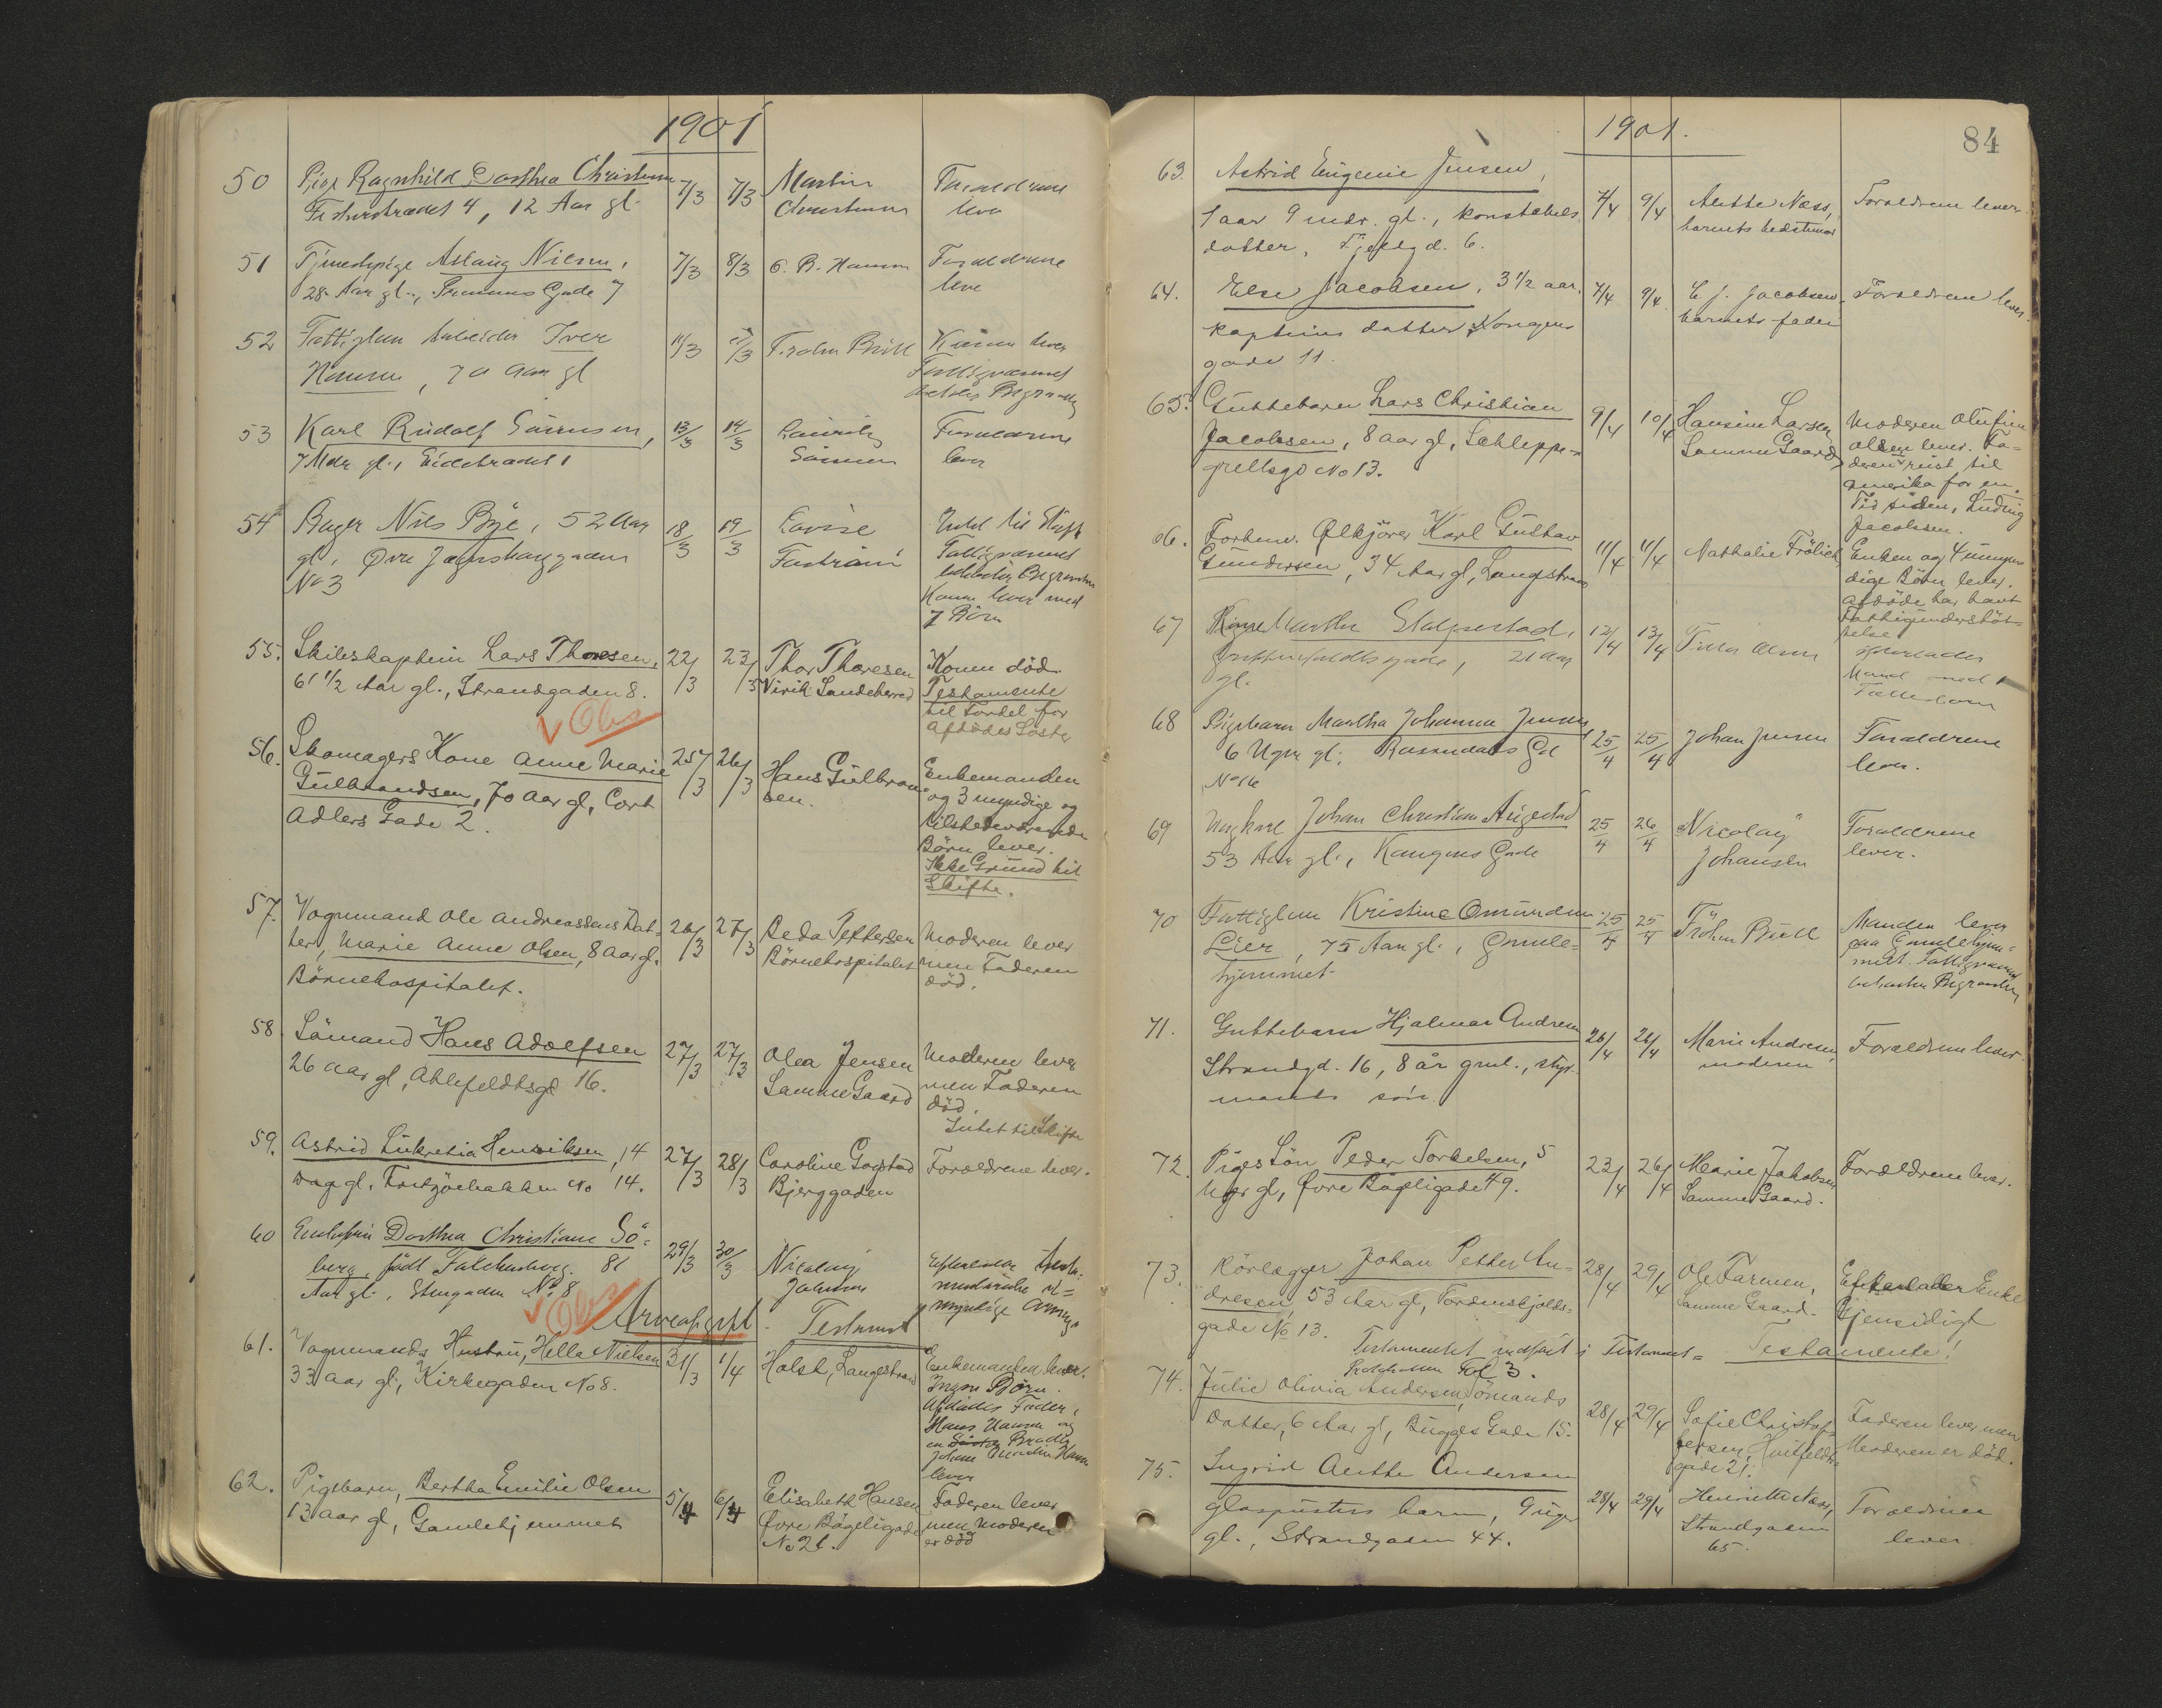 1901
50
Pige Ragnhild Dorthea Christensen
7/3
7/3
Martin
Forældrene
4, 12 Aar gl.
Christensen
lever
51
Tjenestepige Aslaug Nilsen,
7/3
8/3
Hansen
Forældrene
28 Aar gl., Gade 7
leve
52
Fattiglem Arbeider Iver
11/3
Frøken Büll
Konen lever
Hansen, 70 Aar gl
Fattigvæsenet
53
Karl Rudolf
13/3
14/3
Lauritz
Forældrene
7 Mdr gl.,
lever
54
Bager Nils Bye, 52 Aar
18/3
19/3
Lovise
Intet til Skifte
gl., Øvre
Fattigvæsenet
No 3
Konen lever med
7 Børn
55.
Skibskaptein Lars Thoresen,
22/3
23/3
Thor Thoresen
Konen död.
61 1/2 Aar gl., Strandgaden 8.
Sandeherred
Testamente
til Fordel for
Afdødes Søster
Obs
56.
Skomagers Kone Anne Marie
25/3
26/3
Hans Gulbrand-
Enkemanden
Gulbrandsen, 70 aar gl, Cort
sen.
og 3 myndige og
Adlers Gade 2.
tilstedeværende
Börn lever.
Ikke Grund til
Skifte.
57.
Vognmand Ole Andreassens Dat-
26/3
27/3
Beda Pettersen
Moderen lever
ter, Marie Anne Olsen, 8 Aar gl.
Börnehospitalet
men Faderen
Börnehospitalet.
död.
58.
Sömand Hans Adolfsen
27/3
27/3
Olea Jensen
Moderen lever
26 aar gl, Ahlefeldtsgd 16.
Samme Gaard
men Faderen
död.
Intet til Skifte
59.
Astrid Lukretia Henriksen, 14
27/3
28/3
Caroline Gogstad
Forældrene lever.
Dag gl. Fritzöebakken No 14.
Bjerggaden
60
Enkefru Dorthea Christiane Sö-
29/3
30/3
Nicolay
berg, född Falckenberg. 81
Johnsen
myndige Arvinger
Aar gl., Storgaden No 8
Obs
Arveafgift. Testament
61.
Vognmands Hustru, Hella Nielsen
31/3
1/4
Holst, Langestrand
Enkemanden lever.
33 aar gl, Kirkegaden No 8.
Ingen Börn.
Afdødes Fader,
Hans Hansen og
en Broder
Johan Hansen
lever
62.
Pigebarn, Bertha Emilie Olsen
5/4
6/4
Elisabeth Hansen
Faderen lever
13 aar gl, Gamlehjemmet
Øvre Bøgeligade
men Moderen
No 21.
er död
1901.
84
63.
Astrid Eugenie Jensen,
7/4
9/4
Anette Næss,
Forældrene lever.
1 aar 9 mdr. gl., konstabels
barnets bedstemor
datter, Fjeldgd. 6.
64.
Else Jacobsen, 3 1/2 aar,
7/4
9/4
E. J. Jacobsen,
Forældrene lever.
kapteins datter, Kongens
barnets fader
gade 11.
65.
Guttebarn Lars Christian
9/4
10/4
Hansine Larsen
Moderen Olufine
Jacobsen, 8 aar gl, Schleppe-
Samme Gaard
Olsen lever. Fa-
grellsgd No 13.
deren reist til
Amerika for en
Tid siden, Ludvig
Jacobsen.
66.
Forhenv. Ølkjörer Karl Gustav
11/4
11/4
Nathalie Frölich
Enken og 4 umyn-
Gundersen, 34 Aar gl, Langestrand
dige Börn lever.
Afdøde har havt
Fattigunderstöt-
telse
67
Martha Stalperstad,
12/4
13/4
Olsen
efterlader
21 Aar
Mand med 1
gl.
68
Pigebarn Martha Johanna Jensen
25/4
25/4
Johan Jensen
Forældrene
6 Uger gl. Gd
lever.
No 16
69
Ungkarl Johan Christian Augestad
25/4
26/4
Nicolay
Forældrene
53 Aar gl., Kongens Gade
Johansen
lever.
70
Fattiglem Kristine Omundsen
25/4
25/4
Fröken Büll
Manden lever
Lier, 75 Aar gl., Gamle-
paa Gamlehjem-
hjemmet
met. Fattigvæsenet
bekoster Begravelsen
71.
Guttebarn Hjalmar Andresen
26/4
26/4
Marie Andresen,
Forældrene lever.
Strandgd. 16, 8 år gml., styr-
moderen
mands sön.
72.
Piges Sön Peder Torkelsen, 5
23/4
26/4
Marie Jakobsen
Forældrene lever.
Uger gl, Øvre Bøgeligade 49.
Samme Gaard.
73.
Rörlægger Johan Petter An-
28/4
29/4
Ole Farmen,
Efterlader Enke
dresen 53 Aar gl, Tordenskjolds-
Samme Gaard.
Gjensidigt
gade No 13.
Testamentet indfört i Testament=
Testamente!
Protokollen Fol 3.
74.
Julie Olivia Andersen, Sömands
28/4
29/4
Sofie Christof-
Faderen lever men
Datter, 6 Aar gl, Bugges Gade 15.
fersen, Huitfeldts-
Moderen er död.
gade 21.
75.
Ingrid Anette Andersen
28/4
29/4
Henriette Næss,
Forældrene
glaspusters barn, 9 uger
Strandgaden
lever.
gl., Strandgaden 44.
65.